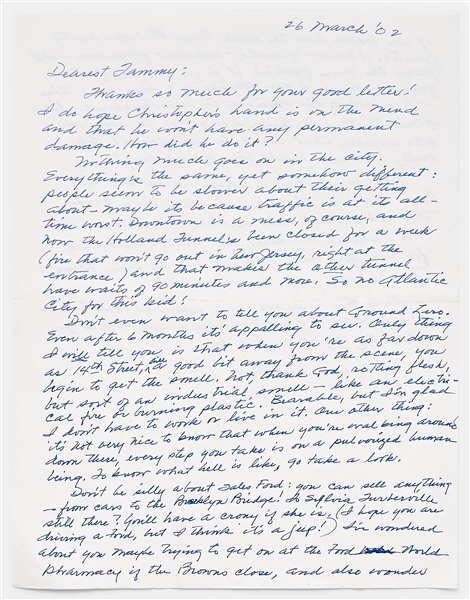 26 March '02
Dearest Tammy:
Thanks so much for your good letter!
I do hope Christopher's hand is on the mend
and that he won't have any permanent
damage. How did he do it?
Nothing much goes on in the city.
Everything's the same, yet somehow different:
people seem to be slower about their getting
about – maybe it's because traffic is at its all-
time worst. Downtown is a mess, of course, and
now the Holland Tunnel's been closed for a week
(fire that won't go out in New Jersey, right at the
entrance) and that makes the other tunnel
have waits of 90 minutes and more. So no Atlantic
City, for this kid!
Don't even want to tell you about Ground Zero.
Even after 6 months it's appalling to see. Only thing
I will tell you is that when you're as far down
as 14th Street, a good bit away from the scene, you
begin to get the smell. Not, thank God, rotting flesh,
but sort of an industrial smell – like an electri-
cal fire or burning plastic. Bearable, but I'm glad
I don't have to work or live in it. One other thing:
it's not very nice to know that when you're walking around
down there, every step you take is on a pulverized human
being. To know what hell is like, go take a look.
Don't be silly about Sales Ford: you can sell anything
– from cars to the Brooklyn Bridge! Is Sylvia Turberville
still there? You'll have a crony if she is. (I hope you are
driving a Ford, but I think it's a jeep!) I've wondered
about you maybe trying to get on at the Ford World
Pharmacy if the Browns close, and also wonder